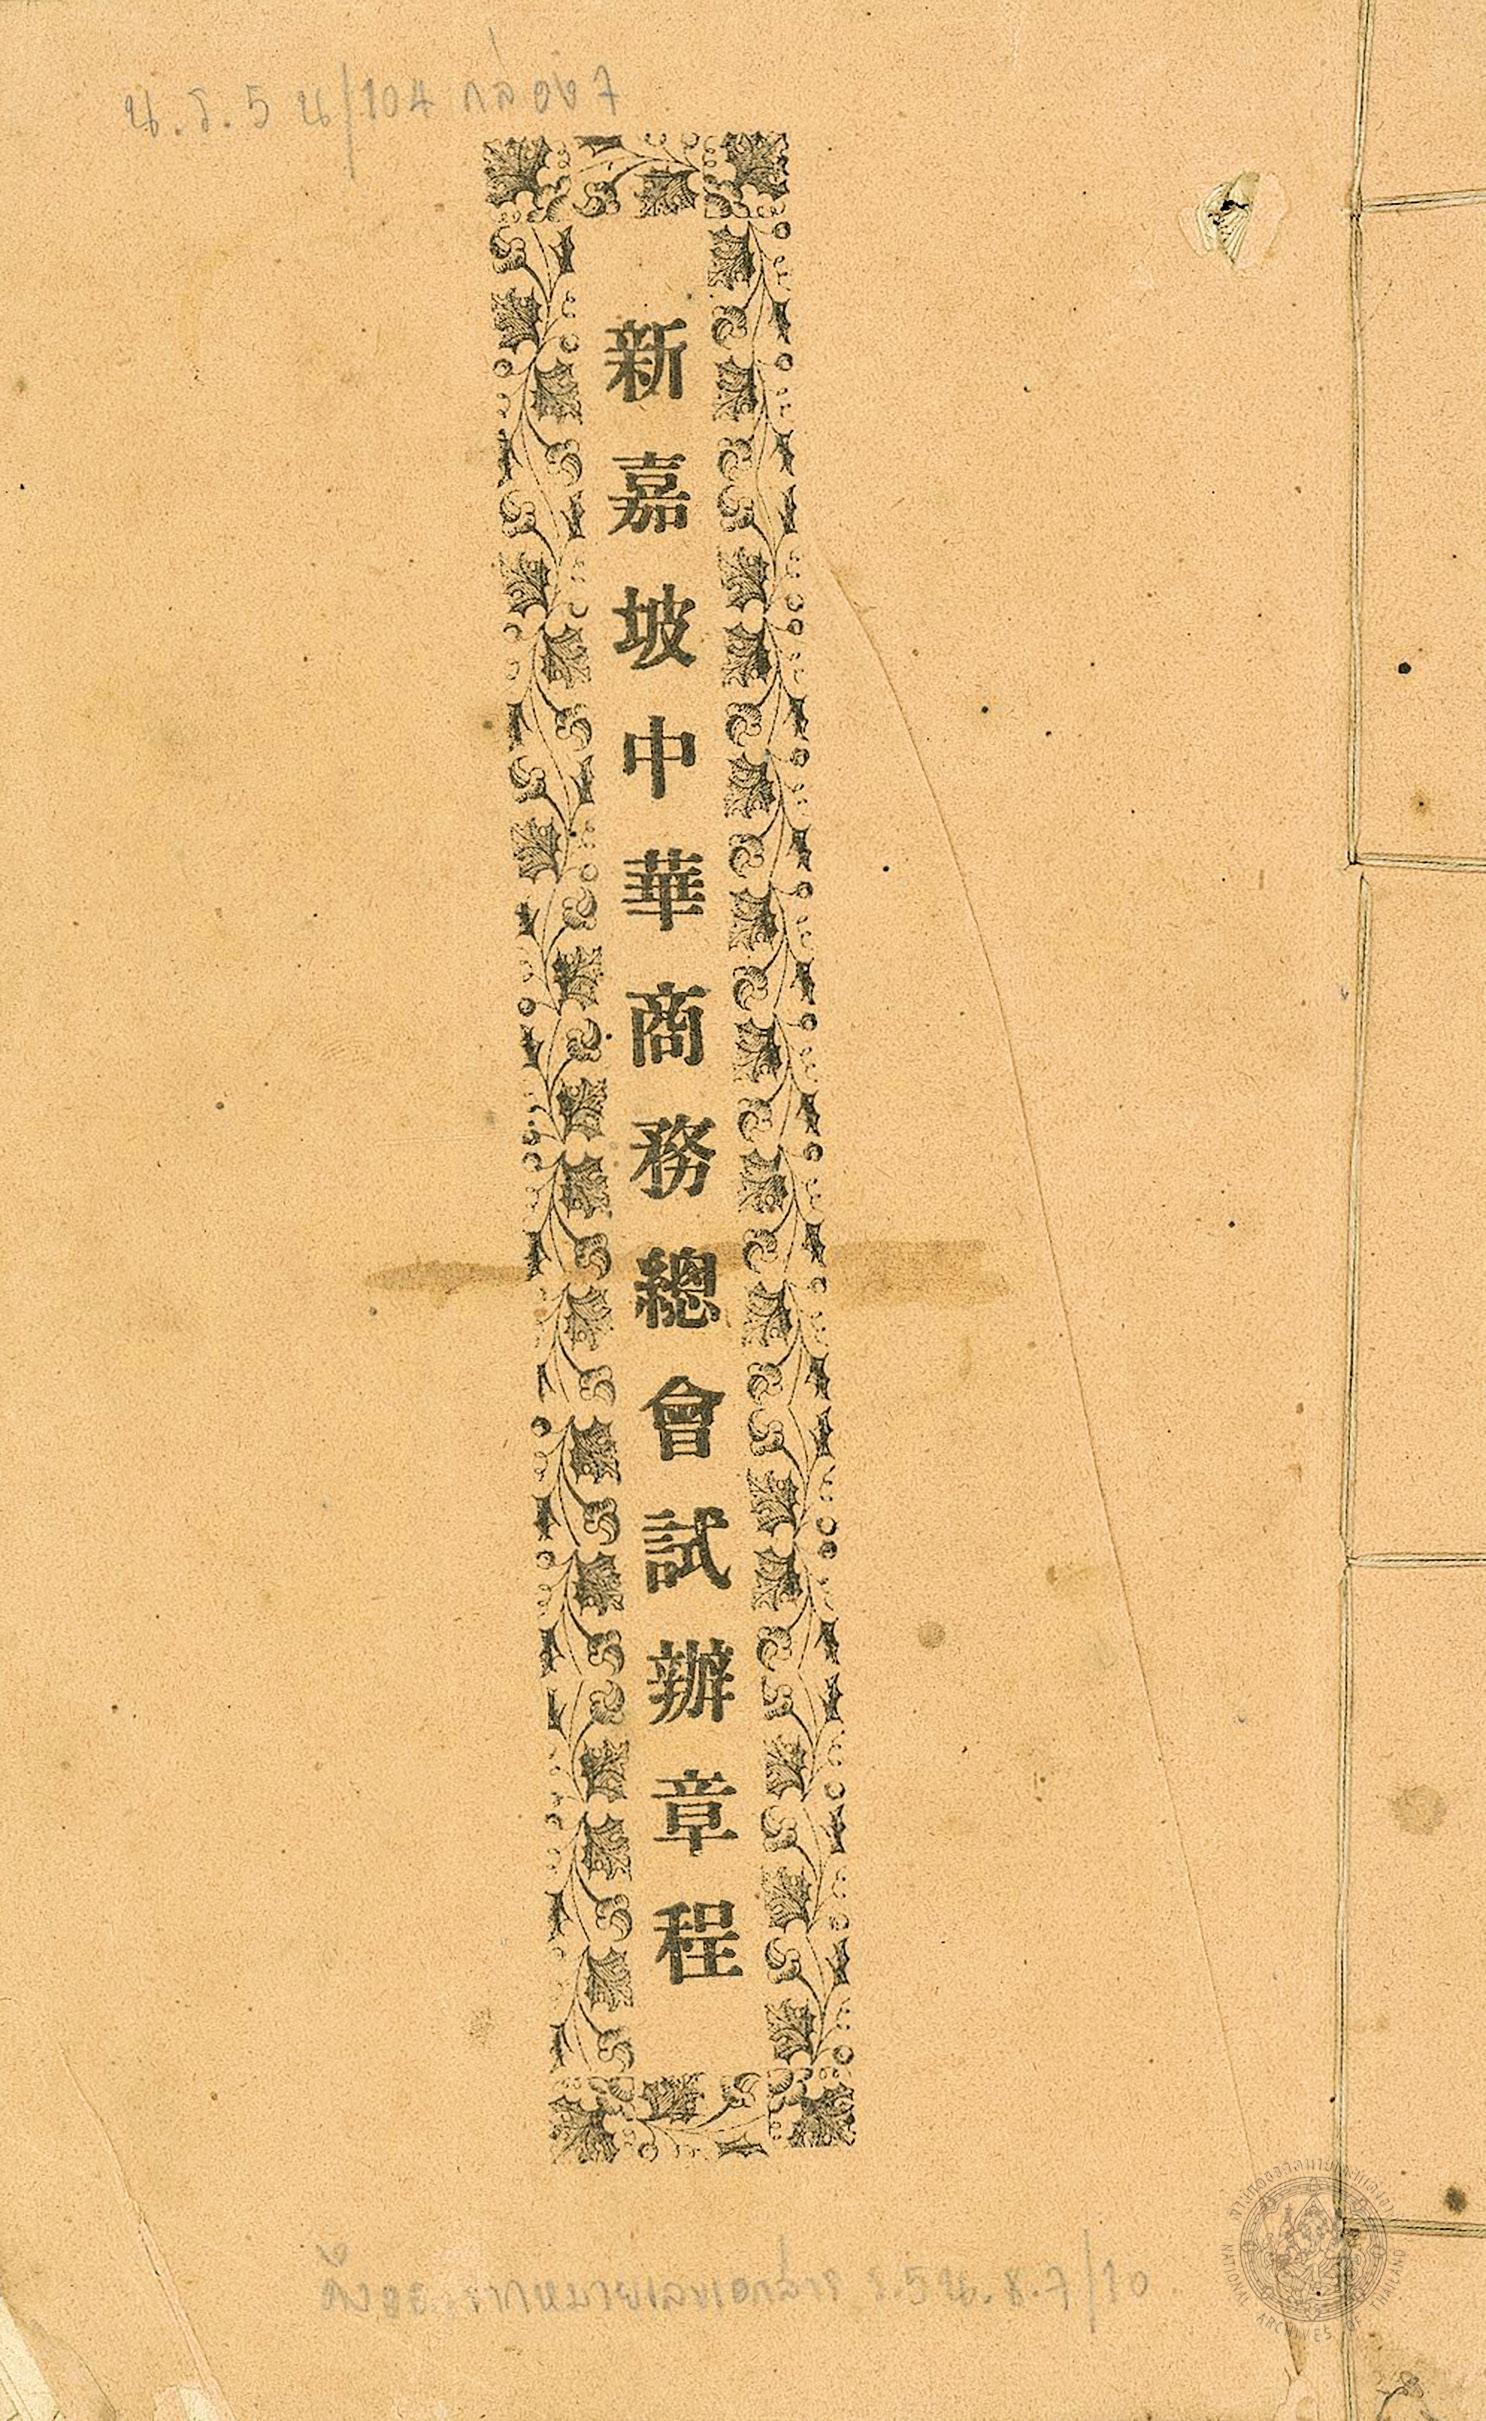 น.ร.5 น/104 กล่อง 7
新嘉坡中華商務總會試辦章程
ดึงออกจากหมายเลขเอกสาร ร.5 น.8.7/10
NATIONAL ARCHIVES OF THAILAND